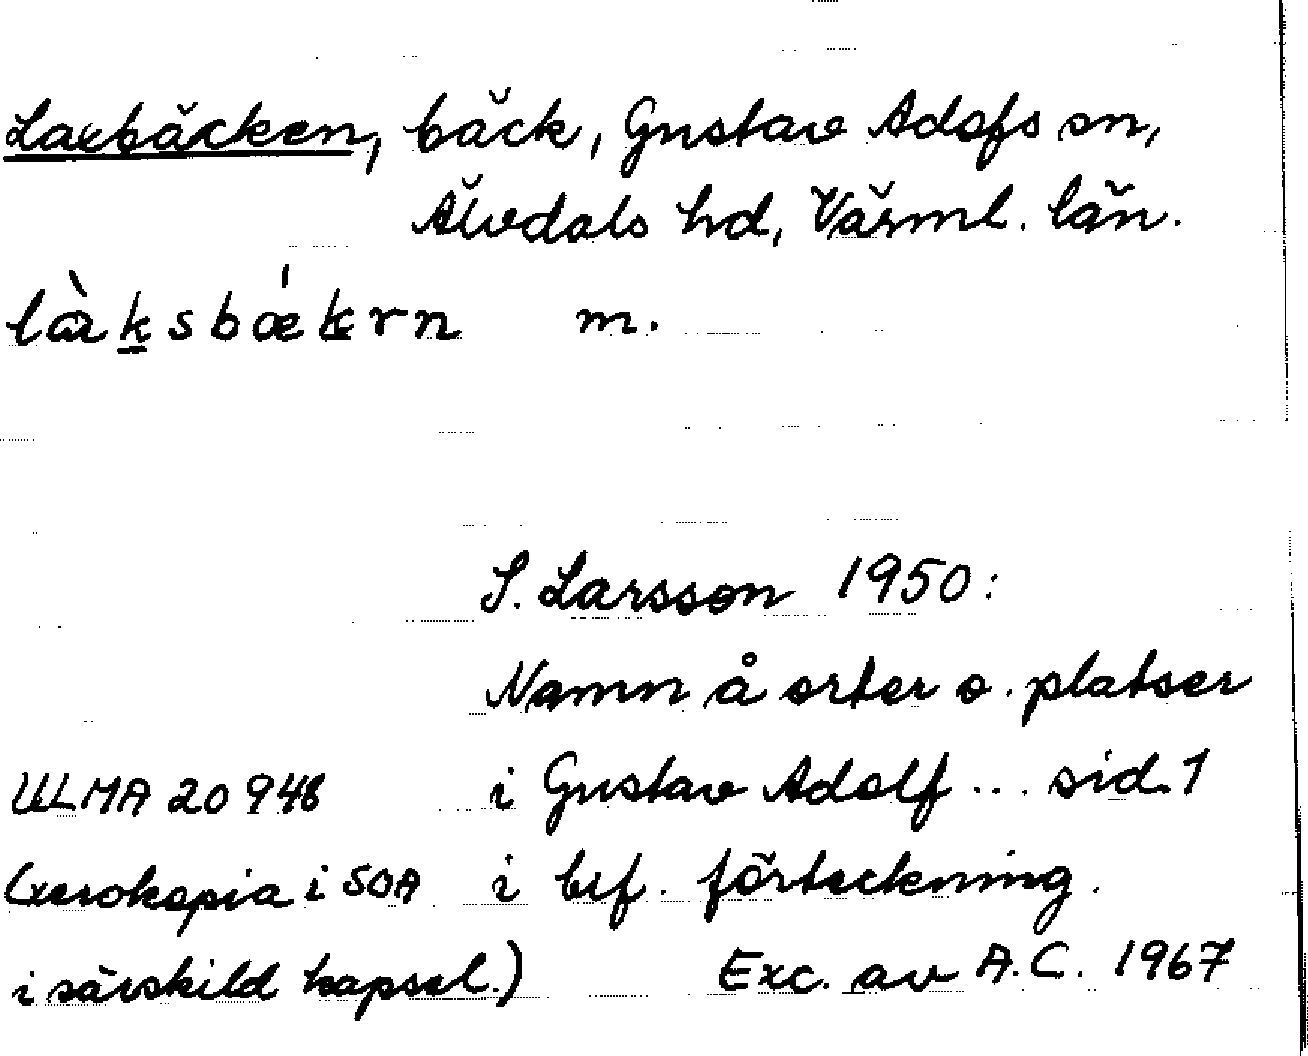 Laxbäcken, bäck, Gustav Adofs sn,
Älvdals hd, Värml. län.
làksbǽkrn m.
S. Larsson 1950:
Namn å orter o. platser
ULMA 20 948 i Gustav Adolf ... sid. 1
(xerokopia i SOA i bif. förteckning.
i särskild kapsel.) Exc. av A.C. 1967